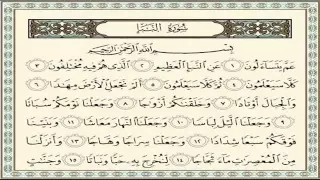 سُورَةُ النَّبَإِ
بِسْمِ اللَّهِ الرَّحْمَٰنِ الرَّحِيمِ
عَمَّ يَتَسَاءَلُونَ ١ عَنِ النَّبَإِ الْعَظِيمِ ٢ الَّذِي هُمْ فِيهِ مُخْتَلِفُونَ ٣
كَلَّا سَيَعْلَمُونَ ٤ ثُمَّ كَلَّا سَيَعْلَمُونَ ٥ أَلَمْ نَجْعَلِ الْأَرْضَ مِهَادًا ٦
وَالْجِبَالَ أَوْتَادًا ٧ وَخَلَقْنَاكُمْ أَزْوَاجًا ٨ وَجَعَلْنَا نَوْمَكُمْ سُبَاتًا
٩ وَجَعَلْنَا اللَّيْلَ لِبَاسًا ١٠ وَجَعَلْنَا النَّهَارَ مَعَاشًا ١١ وَبَنَيْنَا
فَوْقَكُمْ سَبْعًا شِدَادًا ١٢ وَجَعَلْنَا سِرَاجًا وَهَّاجًا ١٣ وَأَنْزَلْنَا
مِنَ الْمُعْصِرَاتِ مَاءً ثَجَّاجًا ١٤ لِنُخْرِجَ بِهِ حَبًّا وَنَبَاتًا ١٥ وَجَنَّاتٍ